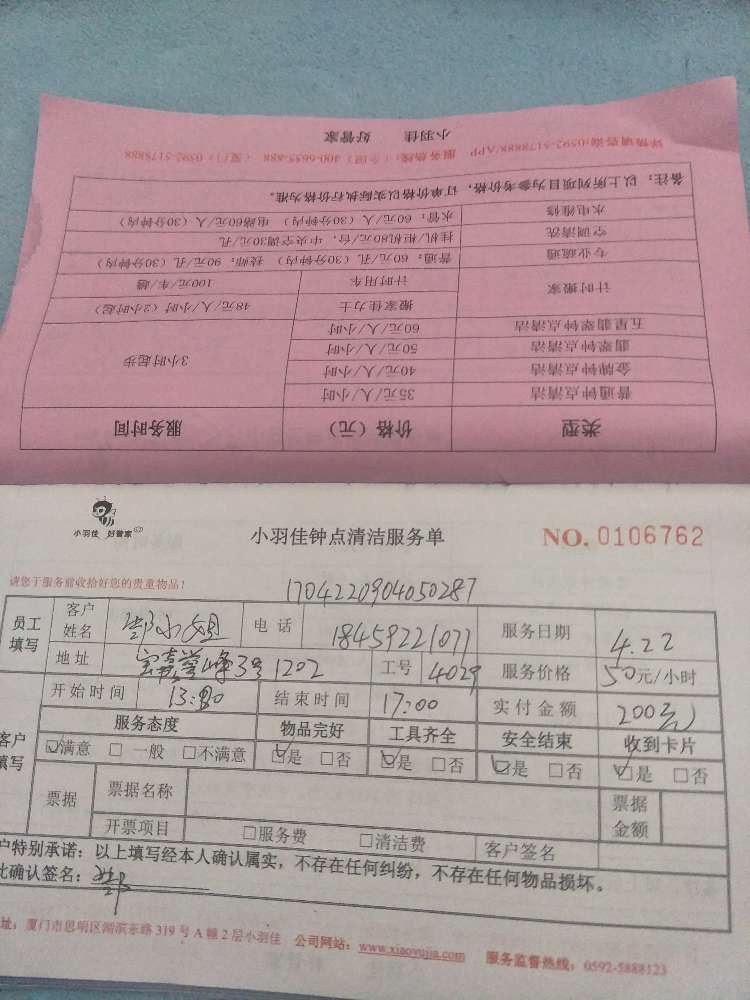 小羽佳 好管家
详情请咨询:0592-5178888/APP 服务热线:(全国)400-6655-888 (厦门)0592-5178888
备注:以上所列项目为参考价格,订单价格以实际执行价格为准。
水电维修 水管:60元/人(30分钟内) 电路60元/人(30分钟内)
空调清洗 挂机/柜机80元/台,中央空调30元/孔
专业疏通 普通:60元/孔(30分钟内) 技师:90元/孔(30分钟内)
计时搬家 计时用车 100元/车/趟
搬家佳力士 48元/人/小时(2小时起)
五星翡翠钟点清洁 60元/人/小时
翡翠钟点清洁 50元/人/小时 3小时起步
金牌钟点清洁 40元/人/小时
普通钟点清洁 35元/人/小时
类型 价格(元) 服务时间
小羽佳 好管家
小羽佳钟点清洁服务单 NO.0106762
请您于服务前收拾好您的贵重物品!
1704220904050287
员工填写 客户姓名 邹小姐 电话 18459221077 服务日期 4.22
地址 宝嘉誉峰3号1202 工号 4029 服务价格 50元/小时
开始时间 13:00 结束时间 17:00 实付金额 200元
客户填写 服务态度 物品完好 工具齐全 安全结束 收到卡片
☑满意 □一般 □不满意 ☑是 □否 ☑是 □否 ☑是 □否 ☑是 □否
票据 票据名称 票据金额
开票项目 □服务费 □清洁费 客户签名
户特别承诺:以上填写经本人确认属实,不存在任何纠纷,不存在任何物品损坏。
此确认签名:邹
址:厦门市思明区湖滨东路319号A幢2层小羽佳 公司网站:www.xiaoyujia.com 服务监督热线:0592-5888123